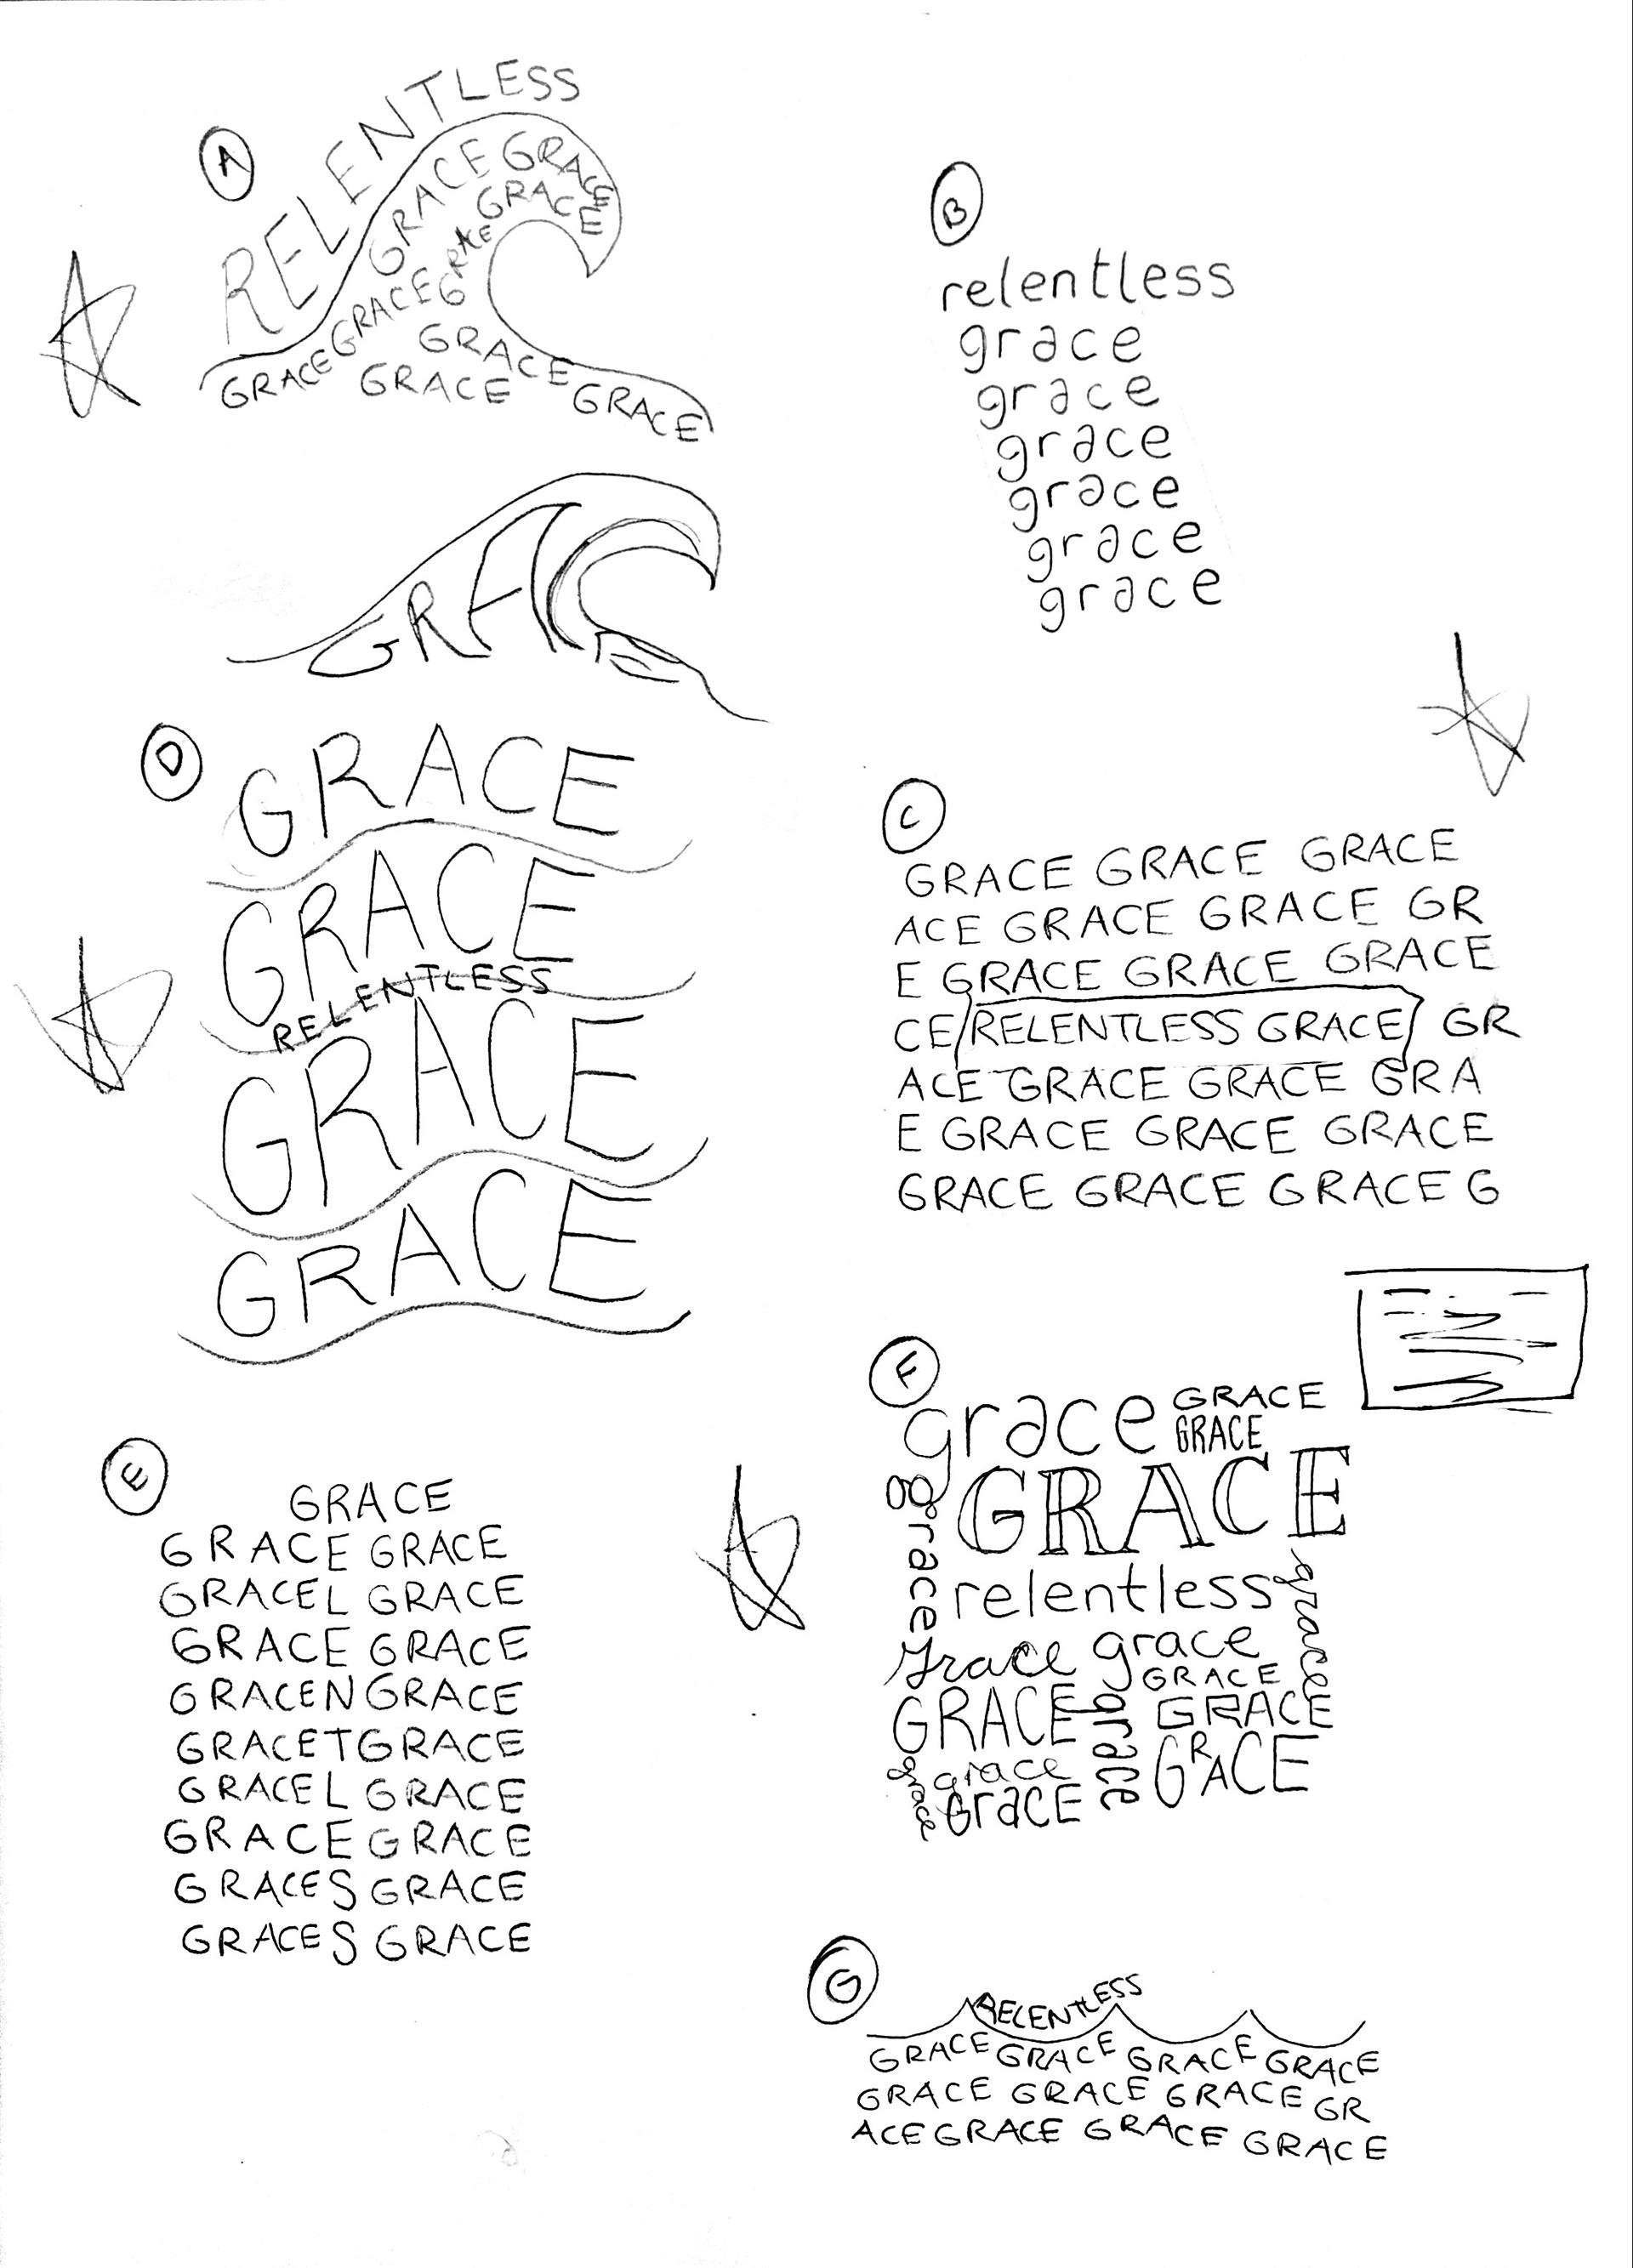 A
RELENTLESS
GRACE GRACE
GRACE
GRACE GRACE GRACE
GRACE
GRACE
GRACE
GRACE
B
relentless
grace
grace
grace
grace
grace
grace
D
GRACE
GRACE
RELENTLESS
GRACE
GRACE
C
GRACE GRACE GRACE
ACE GRACE GRACE GR
E GRACE GRACE GRACE
CE RELENTLESS GRACE GR
ACE GRACE GRACE GRA
E GRACE GRACE GRACE
GRACE GRACE GRACE G
E
GRACE
GRACE GRACE
GRACEL GRACE
GRACE GRACE
GRACEN GRACE
GRACETGRACE
GRACEL GRACE
GRACE GRACE
GRACES GRACE
GRACES GRACE
F
grace GRACE
GRACE
grace
GRACE
relentless
grace
grace grace
GRACE
GRACE
grace
GRACE
grace
grace
GraCE
GRACE
G
RELENTLESS
GRACE GRACE GRACE GRACE
GRACE GRACE GRACE GR
ACE GRACE GRACE GRACE